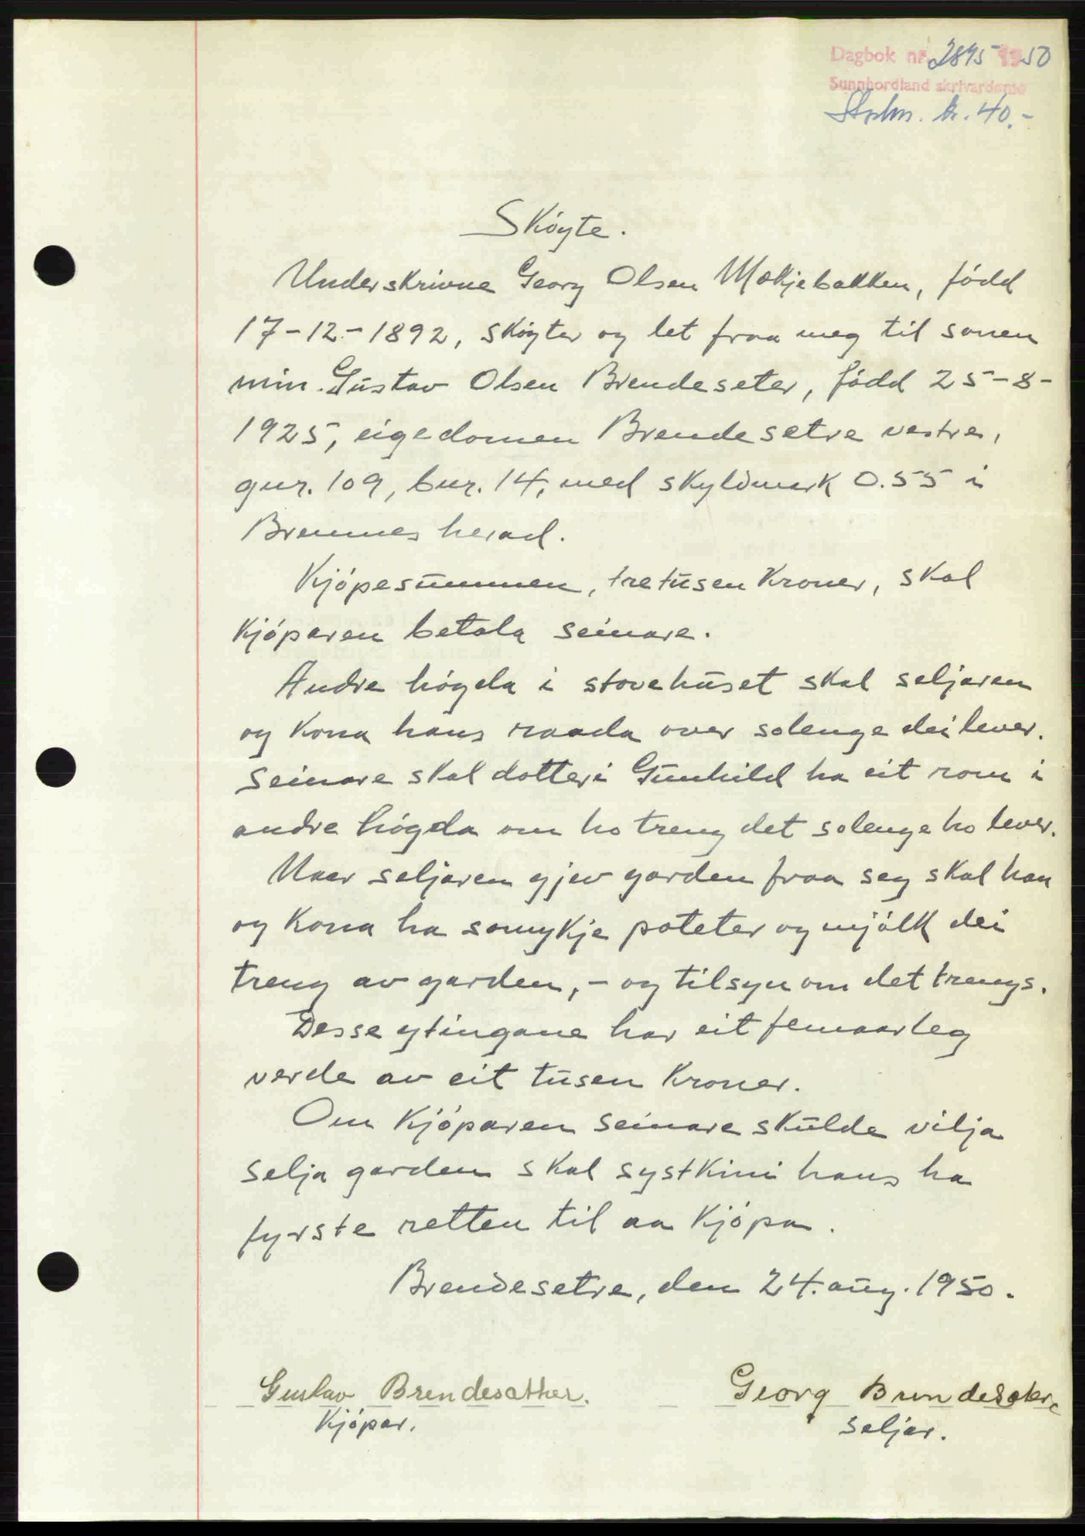 Dagbok nr. 2895 1950
Sunnhordland skrivardøme
Stplm. kr. 40.-
Skøyte.
Underskrivne Georg Olsen Mækjebakken, fødd
17-12-1892, skøyter og let fraa meg til sonen
min Gustav Olsen Brendeseter, fødd 25-8-
1925, eigedomen Brendesetre vestre,
gnr. 109, bnr. 14, med skyldmark 0.55 i
Bremnes herad.
Kjöpesummen, tretusen Kroner, skal
Kjöparen betala seinare.
Andre högda i stovehuset skal seljaren
og Kona hans raada over solenge dei lever.
Seinare skal dotteri Gunhild ha eit rom i
andre högda om ho treng det solenge ho lever.
Naar seljaren gjev garden fraa seg skal han
og Kona ha somykje poteter og mjölk dei
treng av garden, - og tilsyn om det trengs.
Desse ytingane har eit femaarleg
verde av eit tusen Kroner.
Om Kjöparen seinare skulde vilja
selja garden skal systkini hans ha
fyrste retten til aa Kjöpa.
Brendesetre, den 24. aug. 1950.
Gustav Brendesæther. Georg Brendesætre
Kjöpar. Seljar.